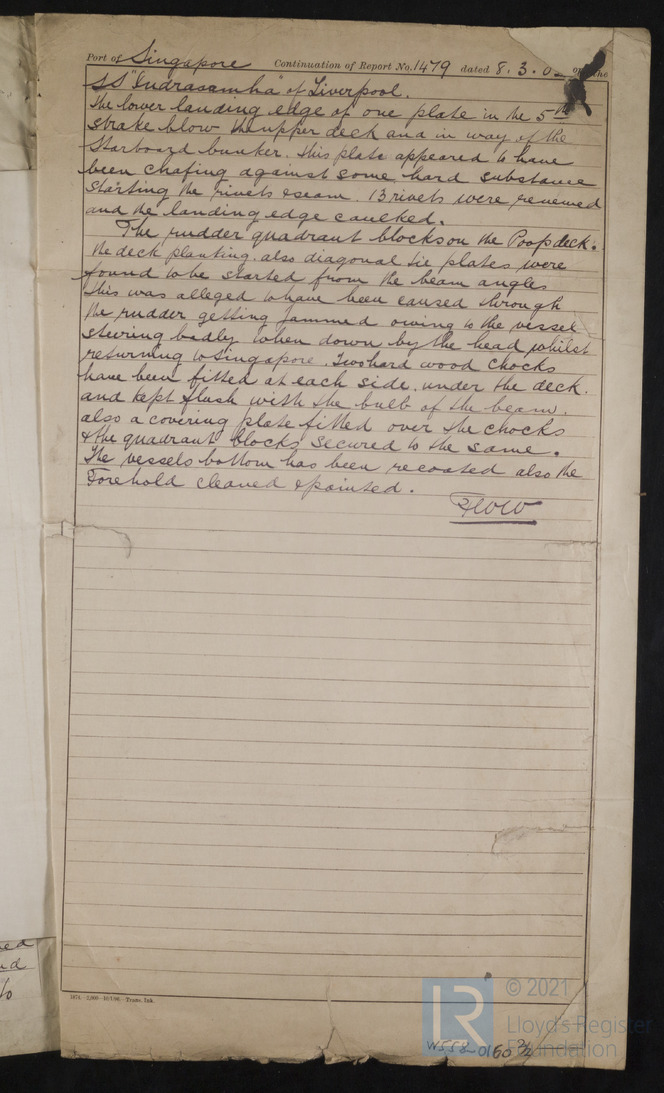 Port of Singapore Continuation of Report No. 1479 dated 8. 3. 0 on the
SS "Indrasamha" of Liverpool.
The lower landing edge of one plate in the 5th
strake blow the upper deck and in way of the
Starboard bunker. This plate appeared to have
been chafing against some hard substance
starting the rivets & seam. 13 rivets were renewed
and the landing edge caulked.
The rudder quadrant blocks on the Poop deck.
the deck planting, also diagonal tie plates were
found to be started from the beam angles
this was alleged to have been caused through
the rudder getting jammed owing to the vessel
steering badly when down by the head whilst
returning to Singapore. Two hard wood chocks
have been fitted at each side, under the deck.
and kept flush with the bulb of the beam.
also a covering plate fitted over the chocks
& the quadrant blocks secured to the same.
The vessels bottom has been recoated also the
Forehold cleaned & painted.
ed
nd
to
© 2021
LR
Lloyd's Register
Foundation
W558-0160 2/2